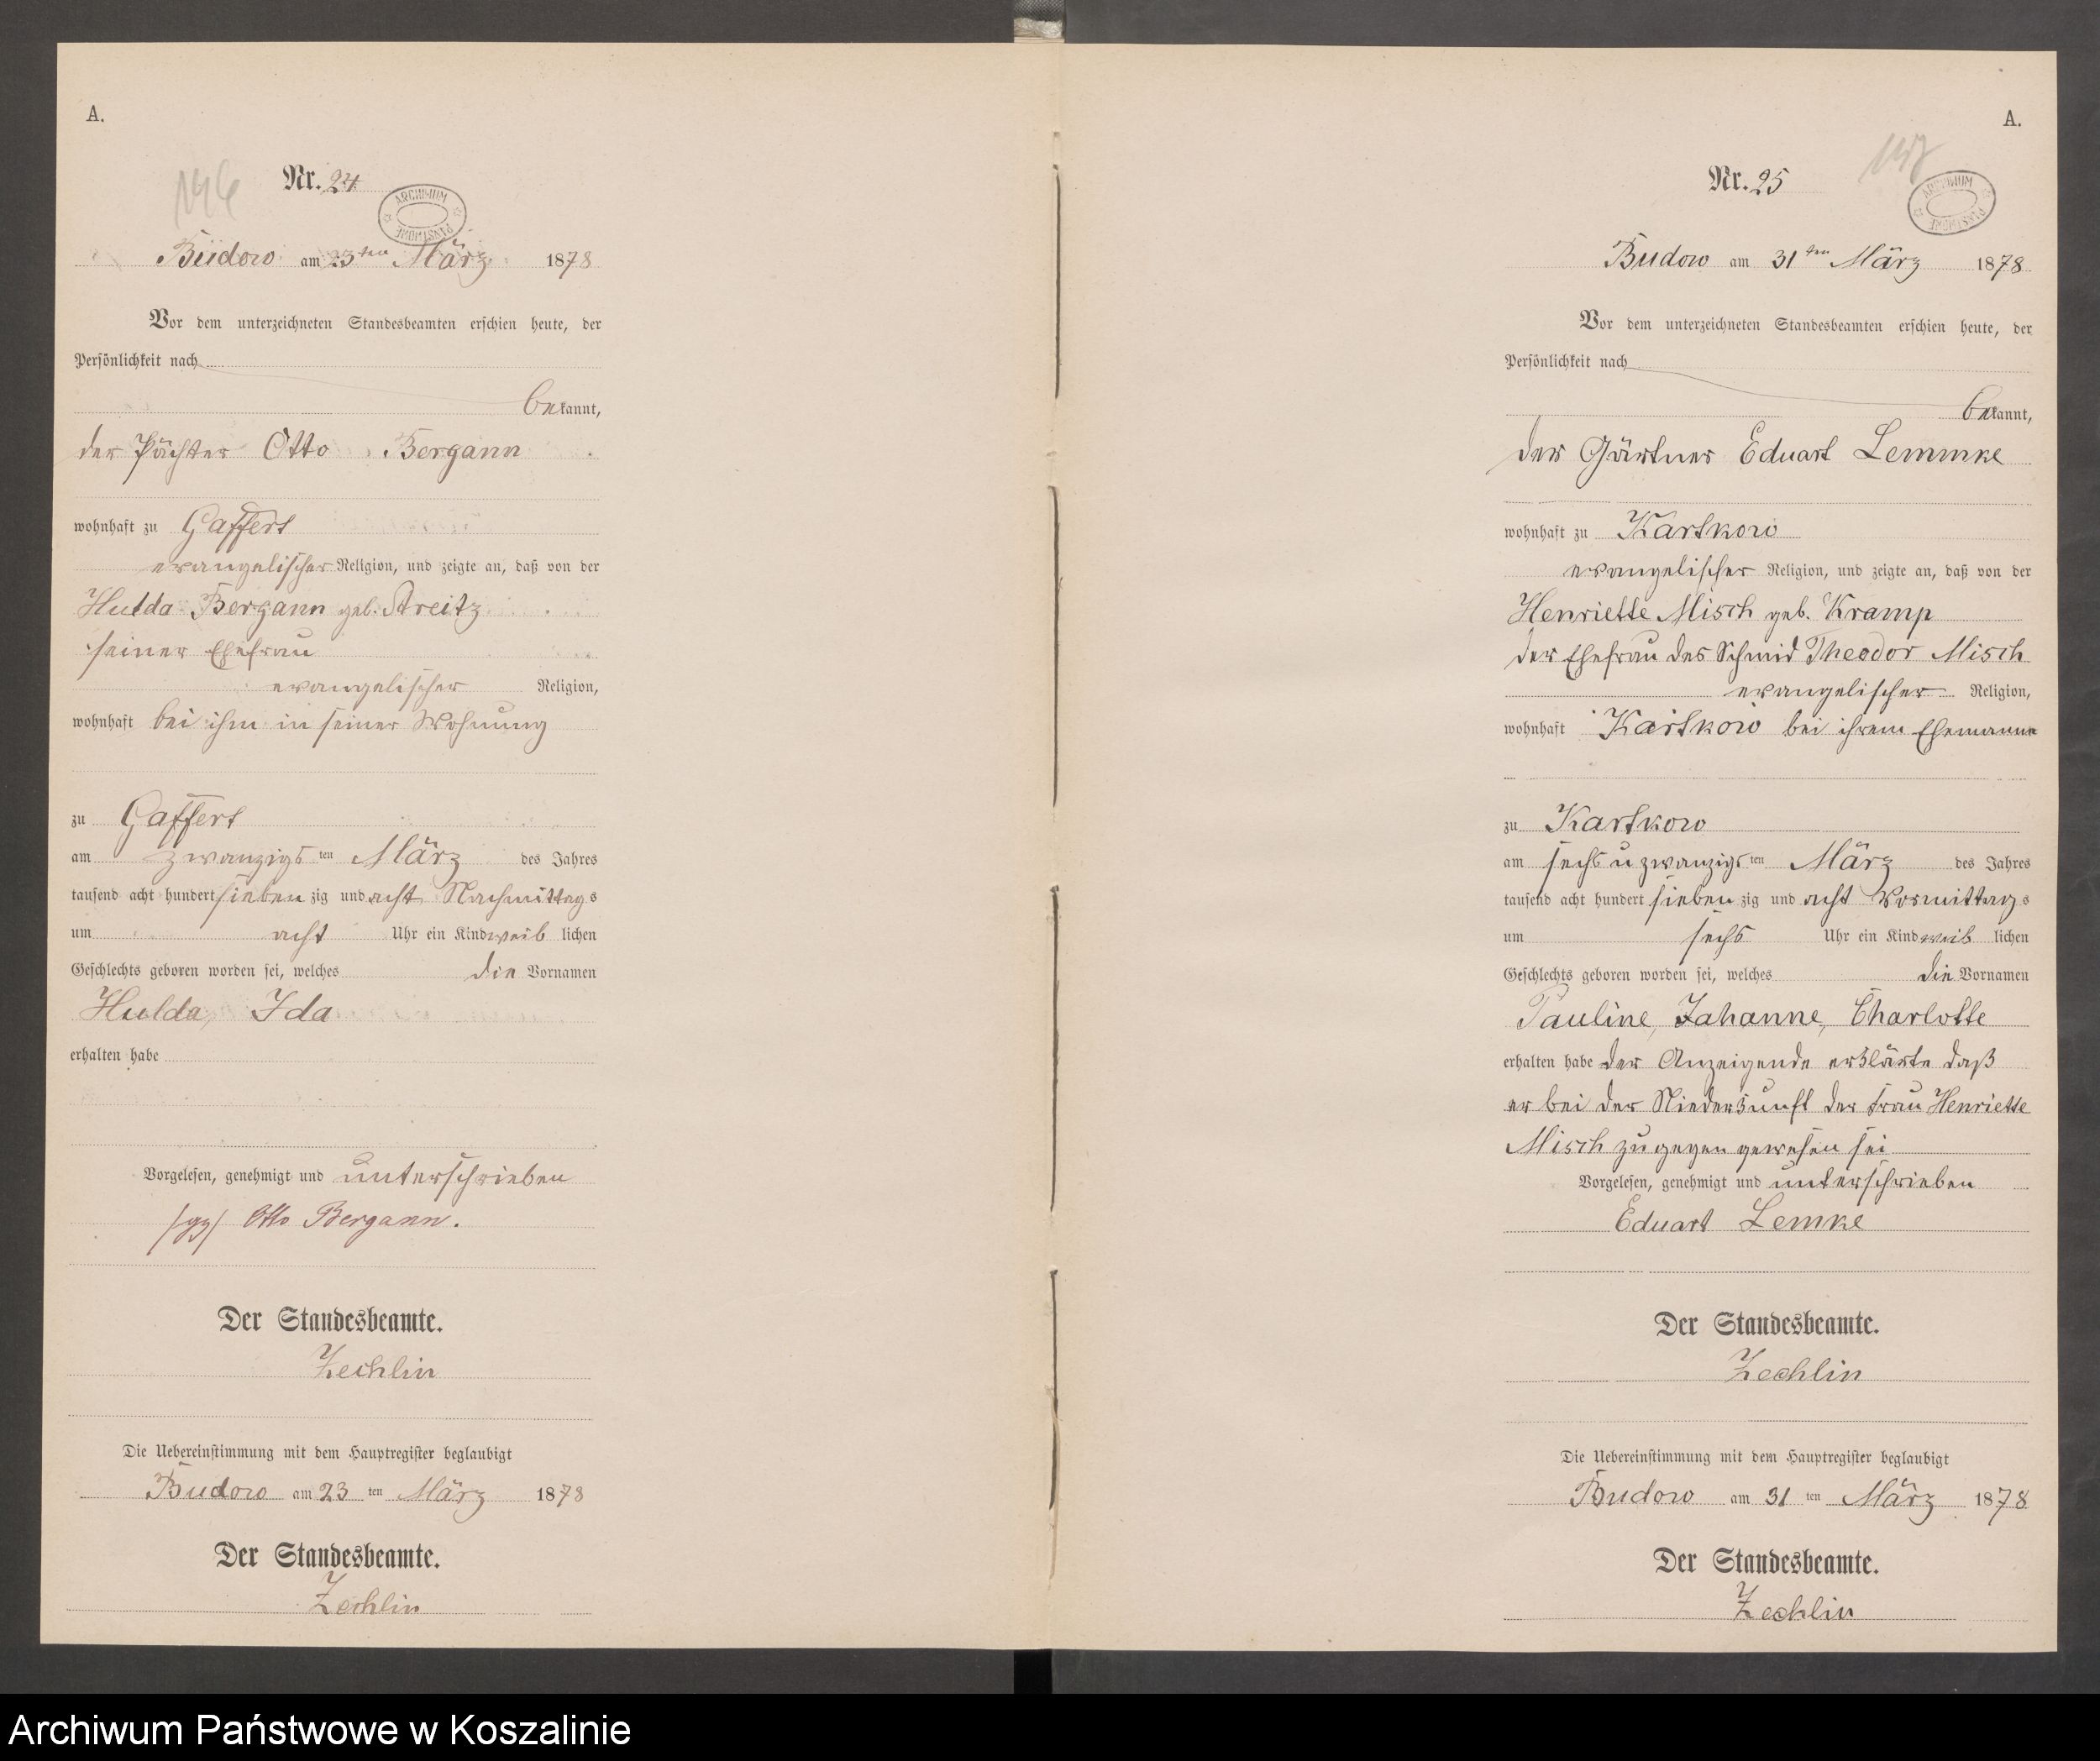 A.
146
Nr. 24
ARCHIWUM PAŃSTWOWE
Budow am 23ten März 1878
Vor dem unterzeichneten Standesbeamten erschien heute, der
Persönlichkeit nach
bekannt,
der Pächter Otto Bergann
wohnhaft zu Gaffert
evangelischer Religion, und zeigte an, daß von der
Hulda Bergann geb. Streitz
seiner Ehefrau
evangelischer Religion,
wohnhaft bei ihm in seiner Wohnung
zu Gaffert
am zwanzigsten März des Jahres
tausend acht hundert siebenzig und acht Nachmittags
um acht Uhr ein Kind weiblichen
Geschlechts geboren worden sei, welches die Vornamen
Hulda, Ida
erhalten habe
Vorgelesen, genehmigt und unterschrieben
/gz/ Otto Bergann.
Der Standesbeamte.
Zechlin
Die Uebereinstimmung mit dem Hauptregister beglaubigt
Budow am 23 ten März 1878
Der Standesbeamte.
Zechlin
A.
147
Nr. 25
ARCHIWUM PAŃSTWOWE
Budow am 31ten März 1878
Vor dem unterzeichneten Standesbeamten erschien heute, der
Persönlichkeit nach
bekannt,
der Gärtner Eduart Lemmke
wohnhaft zu Kartkow
evangelischer Religion, und zeigte an, daß von der
Henriette Misch geb. Kramp
der Ehefrau des Schmid Theodor Misch
evangelischer Religion,
wohnhaft Kartkow bei ihrem Ehemanne
zu Kartkow
am sechs u zwanzigsten März des Jahres
tausend acht hundert siebenzig und acht Vormittags
um sechs Uhr ein Kind weiblichen
Geschlechts geboren worden sei, welches die Vornamen
Pauline, Johanne, Charlotte
erhalten habe der Anzeigende erklärte daß
er bei der Niederkunft der Frau Henriette
Misch zugegen gewesen sei
Vorgelesen, genehmigt und unterschrieben
Eduart Lemke
Der Standesbeamte.
Zechlin
Die Uebereinstimmung mit dem Hauptregister beglaubigt
Budow am 31 ten März 1878
Der Standesbeamte.
Zechlin
Archiwum Państwowe w Koszalinie